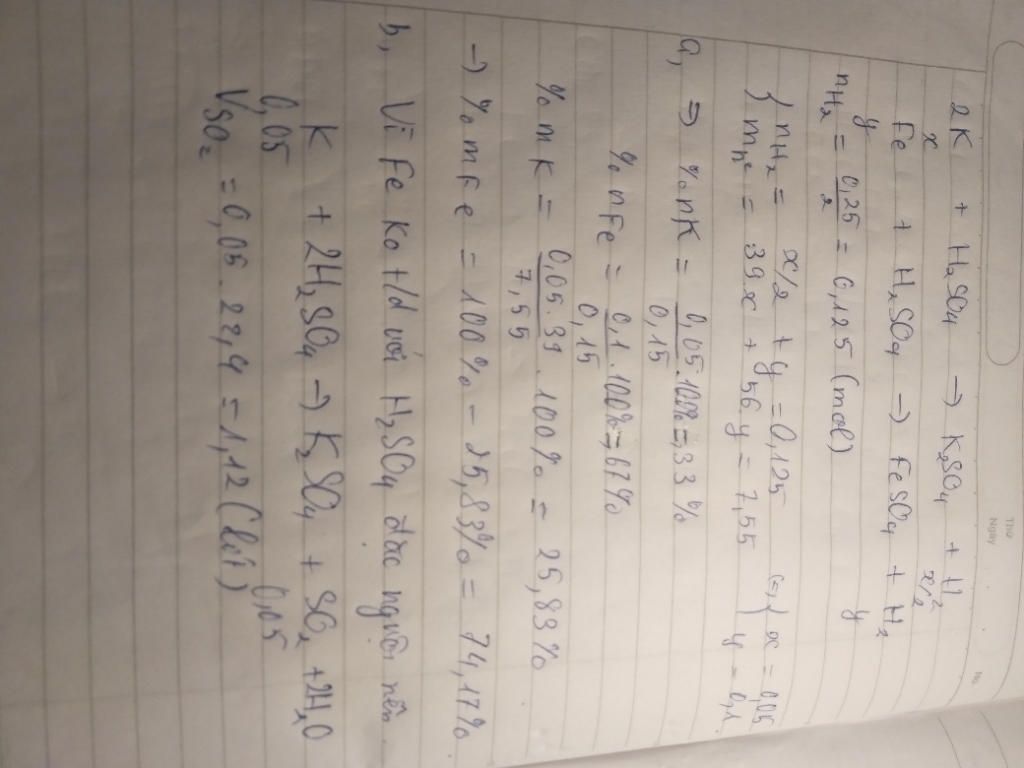 Thứ
Ngày No.
2K + H₂SO₄ → K₂SO₄ + H₂
x x/2
Fe + H₂SO₄ → FeSO₄ + H₂
y y
nH₂ = 0,25/2 = 0,125 (mol)
{ nH₂ = x/2 + y = 0,125 <=> { x = 0,05
{ m = 39x + 56y = 7,55 { y = 0,1
a, => % nK = 0,05/0,15 . 100% = 33%
% nFe = 0,1/0,15 . 100% = 67%
% mK = 0,05.39/7,55 . 100% = 25,83%
→ % mFe = 100% - 25,83% = 74,17%
b, Vì Fe ko t/d với H₂SO₄ đặc nguội nên
K + 2H₂SO₄ → K₂SO₄ + SO₂ + 2H₂O
0,05 0,05
VSO₂ = 0,05 . 22,4 = 1,12 (lít)